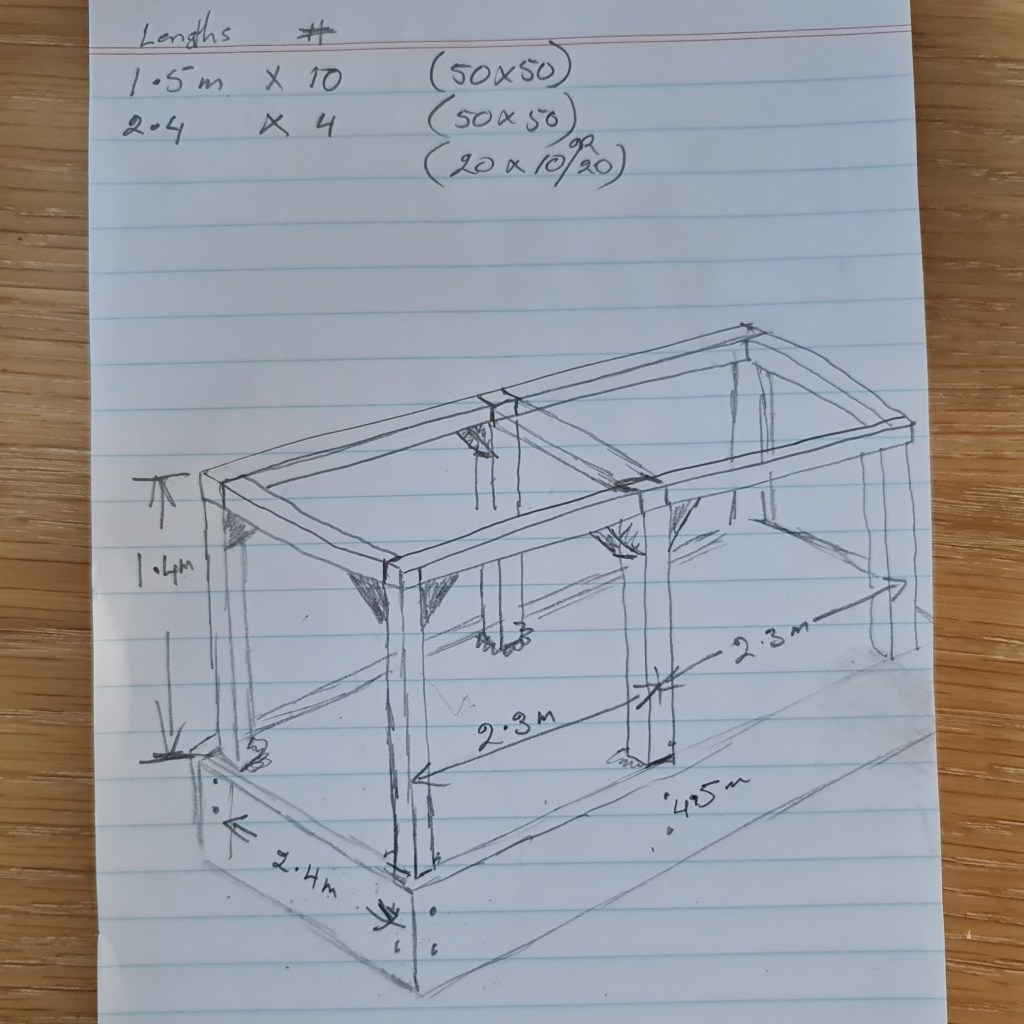 Lengths #
1.5m x 10 (50x50)
2.4 x 4 (50x50)
(20x10/20) OR
1.4m
2.3m
2.3m
4.5m
2.4m